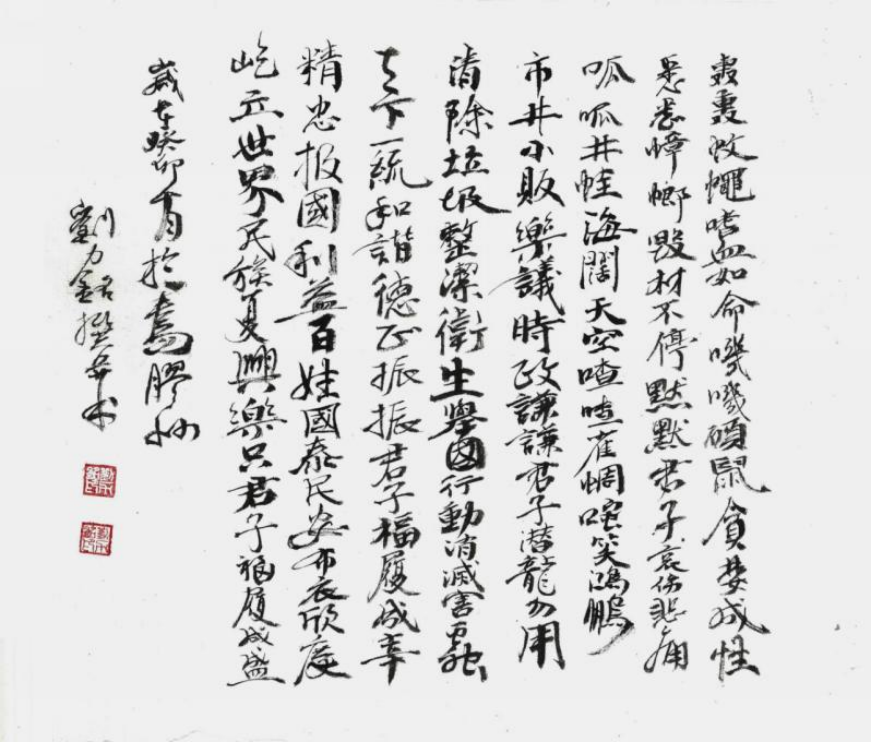 蚊蠅嗜血如命嘰嘰碩鼠貪婪成性
悉悉蟑螂毀材不停默默君子哀傷悲痛
呱呱井蛙海闊天空喳喳雀笑鴻鵬
市井小販樂議時政謙謙君子潛龍勿用
清除垃圾整潔衛生舉國行動消滅害蟲
天下一統和諧德正振振君子福履成幸
精忠报國利益百姓國泰民安布衣欣慶
屹立世界民族复興樂只君子福履成盛
歲在癸卯於島膠州
劉力銘撰并书